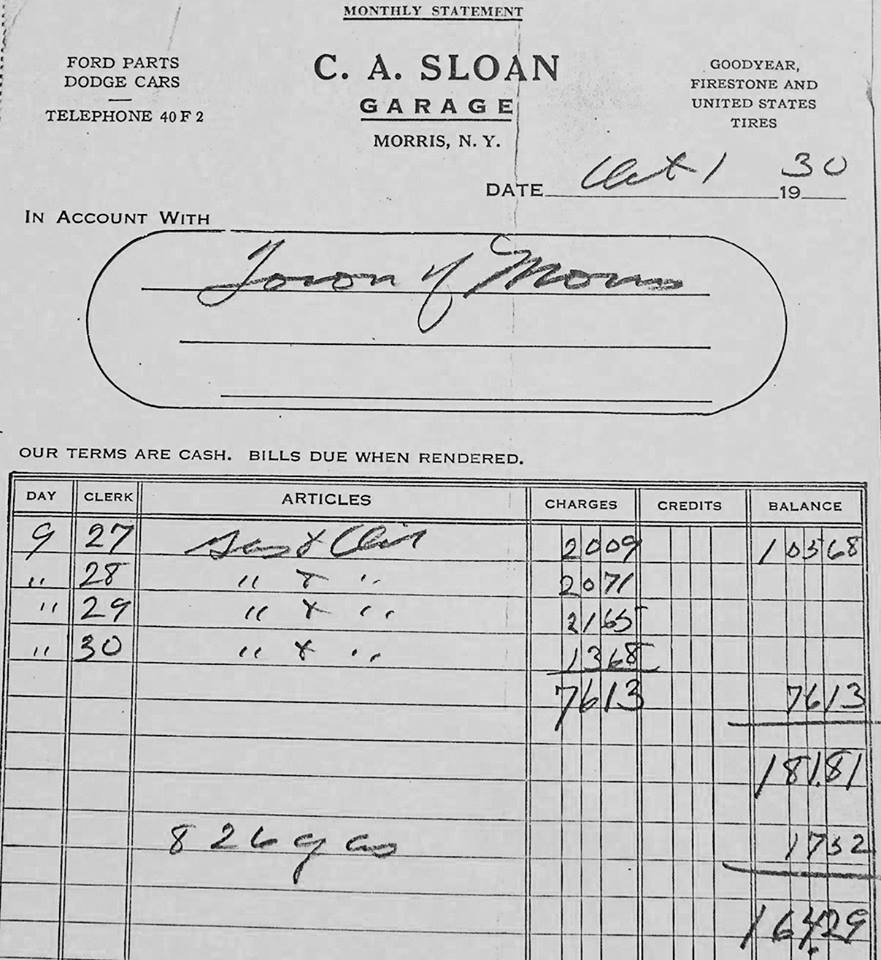 MONTHLY STATEMENT
FORD PARTS
DODGE CARS
TELEPHONE 40 F 2
C. A. SLOAN
GARAGE
MORRIS, N. Y.
GOODYEAR,
FIRESTONE AND
UNITED STATES
TIRES
DATE Oct 1 1930
IN ACCOUNT WITH
Town of Morris
OUR TERMS ARE CASH. BILLS DUE WHEN RENDERED.
DAY CLERK ARTICLES CHARGES CREDITS BALANCE
9 27 Gas & Oil 2009 10568
" 28 " & " 2071
" 29 " & " 2165
" 30 " & " 1368
7613 7613
181.81
826 gas 1752
164.29